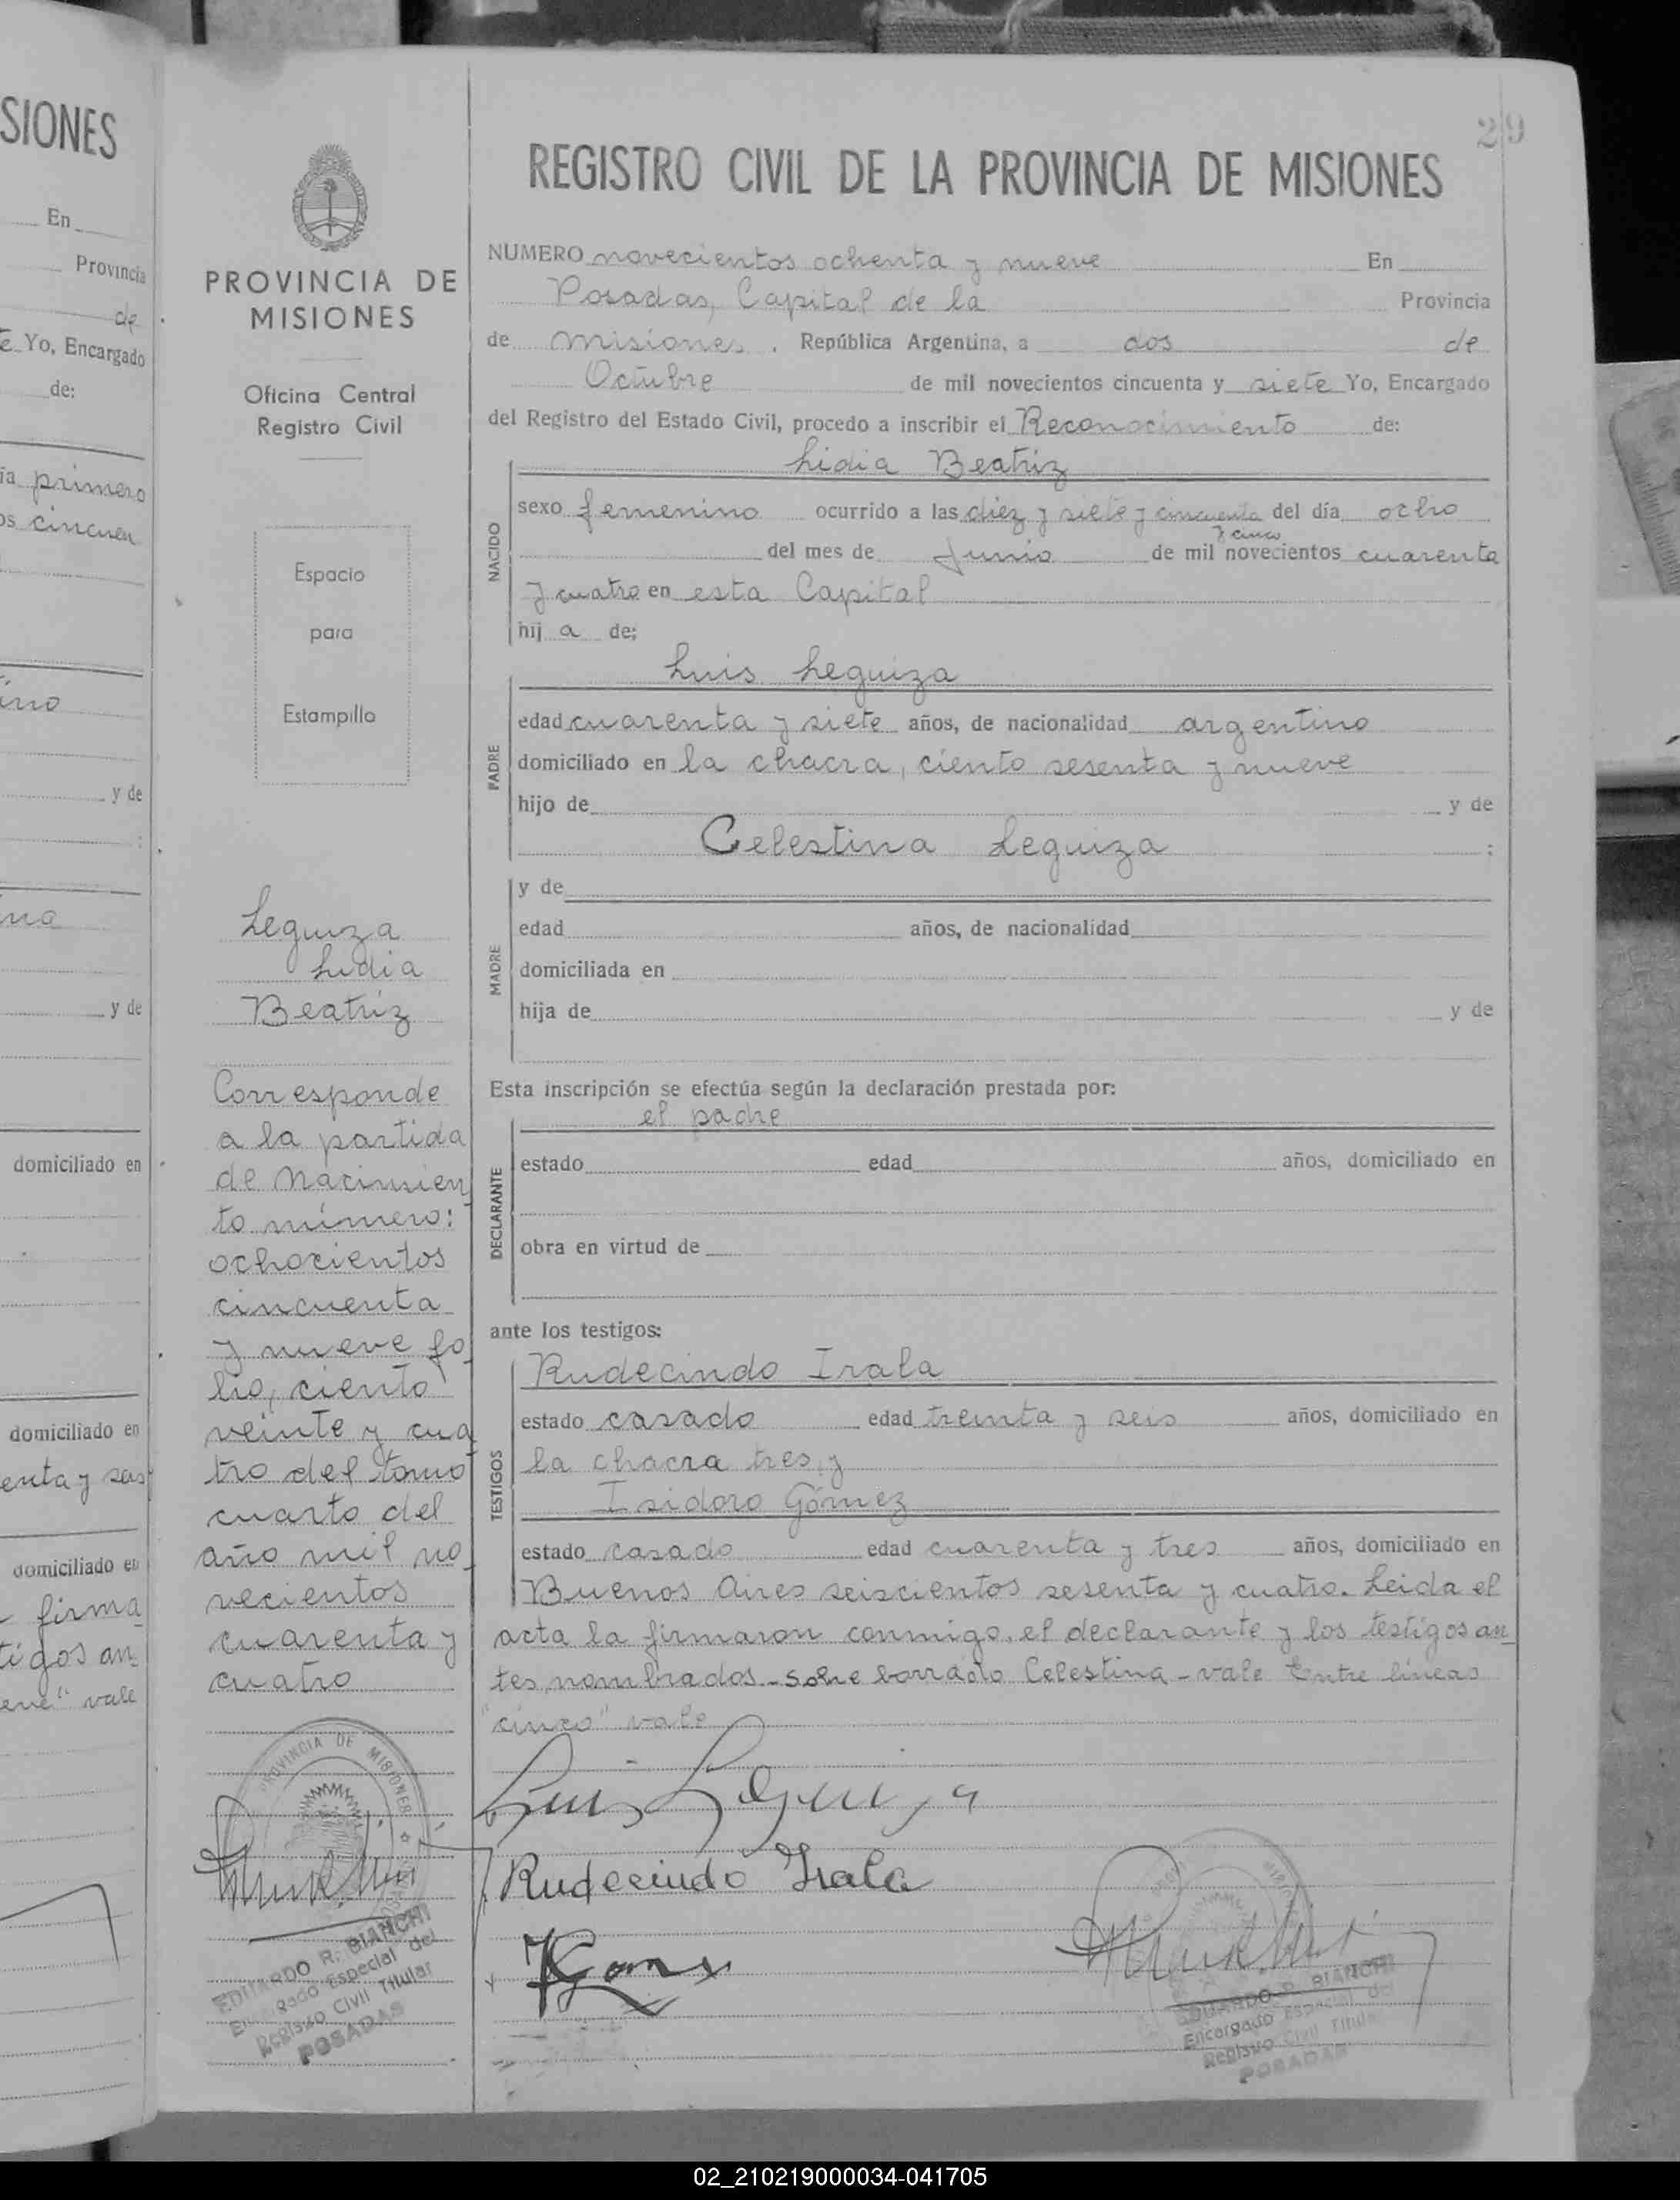 SIONES
En
Provincia
de
te Yo, Encargado
de:
ía primero
os cincuen
ino
y de
ina
y de
domiciliado en
domiciliado en
enta y seis
domiciliado en
firma
tigos an
vale
PROVINCIA DE
MISIONES
Oficina Central
Registro Civil
Espacio
para
Estampilla
Leguiza
Lidia
Beatriz
Corresponde
a la partida
de Nacimien
to número:
ochocientos
cincuenta
y nueve fo
lio, ciento
veinte y cua
tro del tomo
cuarto del
año mil no
vecientos
cuarenta y
cuatro
PROVINCIA DE MISIONES
EDUARDO R. BIANCHI
Encargado Especial del
Registro Civil Titular
POSADAS
29
REGISTRO CIVIL DE LA PROVINCIA DE MISIONES
NUMERO novecientos ochenta y nueve En
Posadas, Capital de la Provincia
de misiones. República Argentina, a dos de
Octubre de mil novecientos cincuenta y siete Yo, Encargado
del Registro del Estado Civil, procedo a inscribir el Reconocimiento de:
Lidia Beatriz
NACIDO
sexo femenino ocurrido a las diez y siete y cincuenta del día ocho
y cinco
del mes de Junio de mil novecientos cuarenta
y cuatro en esta Capital
hij a de:
PADRE
Luis Leguiza
edad cuarenta y siete años, de nacionalidad argentino
domiciliado en la chacra, ciento sesenta y nueve
hijo de y de
Celestina Leguiza :
MADRE
y de
edad años, de nacionalidad
domiciliada en
hija de y de
Esta inscripción se efectúa según la declaración prestada por:
el padre
DECLARANTE
estado edad años, domiciliado en
obra en virtud de
ante los testigos:
TESTIGOS
Rudecindo Irala
estado casado edad treinta y seis años, domiciliado en
la chacra tres y
Isidoro Gómez
estado casado edad cuarenta y tres años, domiciliado en
Buenos Aires seiscientos sesenta y cuatro. Leida el
acta la firmaron conmigo, el declarante y los testigos an
tes nombrados - sobre borrado Celestina - vale Entre líneas
"cinco" vale
Luis Leguiza
Rudecindo Irala
EDUARDO R. BIANCHI
Encargado Especial del
Registro Civil Titular
POSADAS
02_210219000034-041705